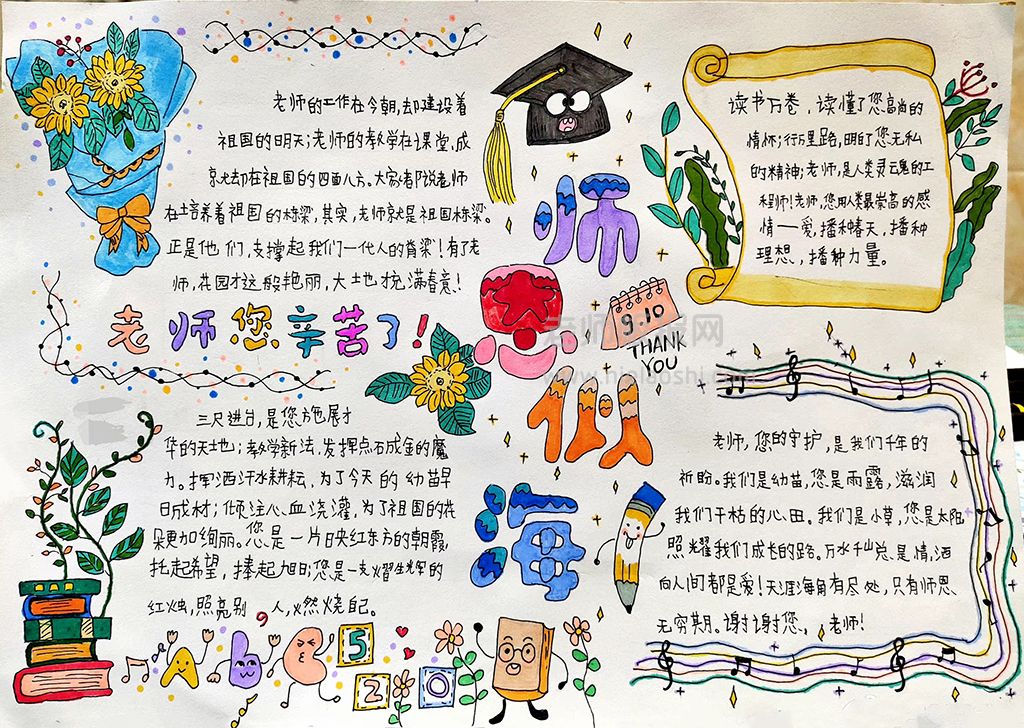 老师的工作在今朝,却建设着
祖国的明天;老师的教学在课堂,成
就却在祖国的四面八方。大家都说老师
在培养着祖国的栋梁,其实,老师就是祖国栋梁。
正是他们,支撑起我们一代人的脊梁!有了老
师,花园才这般艳丽,大地才充满春意!
老师您辛苦了!
三尺进台,是您施展才
华的天地;教学新法,发挥点石成金的魔
力。挥洒汗水耕耘,为了今天的幼苗早
日成材;倾注心血浇灌,为了祖国的花
朵更加绚丽。您是一片映红东方的朝霞,
托起希望,捧起旭日;您是一支熠生辉的
红烛,照亮别人,燃烧自己。
师恩似海
9.10
THANK
YOU
读书万卷,读懂了您高尚的
情怀;行万里路,明了您无私
的精神;老师,是人类灵魂的工
程师!老师,您用人类最崇高的感
情——爱,播种春天,播种
理想,播种力量。
老师,您的守护,是我们千年的
祈盼。我们是幼苗,您是雨露,滋润
我们干枯的心田。我们是小草,您是太阳,
照耀我们成长的路。万水千山总是情,洒
向人间都是爱!天涯海角有尽处,只有师恩
无穷期。谢谢您,老师!
A b C 5
2 0